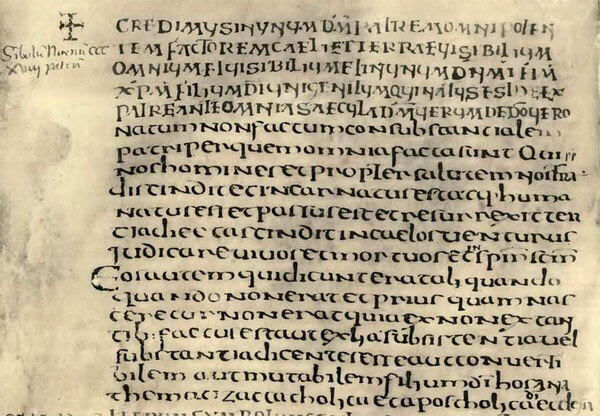 CREDIMUS IN UNUM DM PATREM OMNIPOTEN
TEM FACTOREM CAELI ET TERRAE UISIBILIUM
OMNIUM ET UISIBILIUM ET IN UNUM DNM IHM
XPM FILIUM DI UNIGENITUM QUI NATUS EST EX
PATRE ANTE OMNIA SAECULA DM UERUM DE DO UERO
natum non factum consubstancialem
patri per quem omnia facta sunt Qui pr
nos homines et propter salutem nostra
distindit et incarnatus est huma
natus est et passus est et resurrexit ter
cia die in caelos uenturus
iudicare uiuos et mortuos et in spm scm
Eos autem qui dicunt erat aliquando
quando non erat et prius quam nas
ceretur non erat quia ex non extan
tib: factus est aut ex substantia uel
substantia dicentes esse aut conuerti
bilem aut mutabilem filium di hos ana
catholica et apostholica